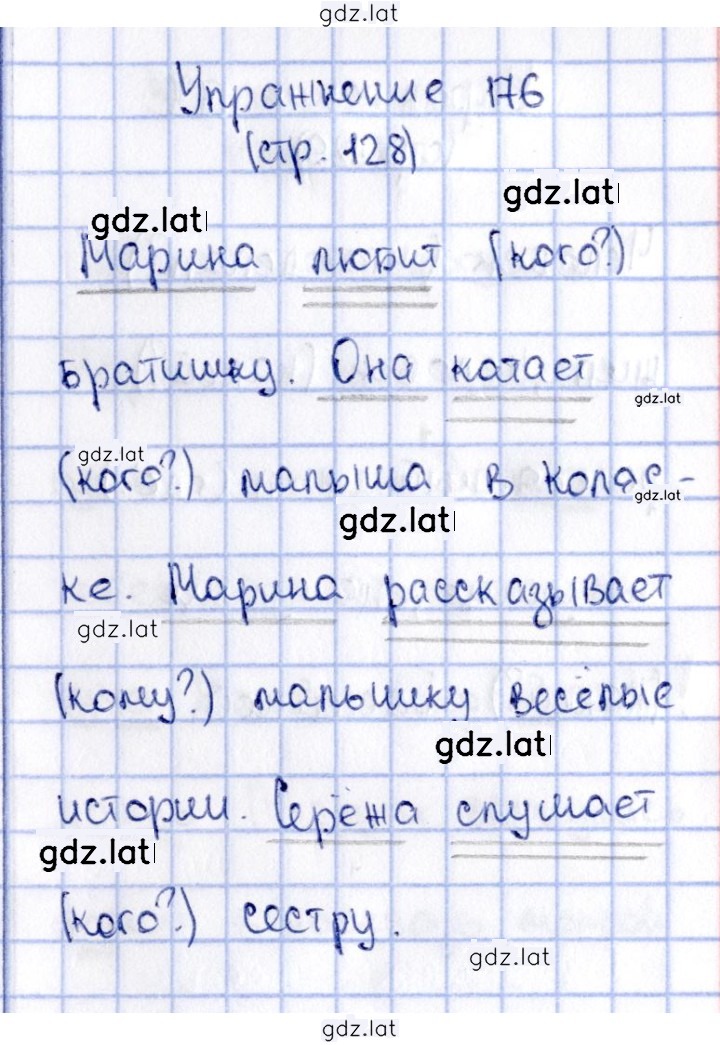 gdz.lat
Упражнение 176
(стр. 128)
gdz.lat
gdz.lat
Марина любит (кого?)
братишку. Она катает
gdz.lat
gdz.lat
(кого?) малыша в коляс-
gdz.lat
gdz.lat
ке. Марина рассказывает
gdz.lat
(кому?) малышику весёлые
gdz.lat
истории. Серёжа слушает
gdz.lat
(кого?) сестру.
gdz.lat
gdz.lat